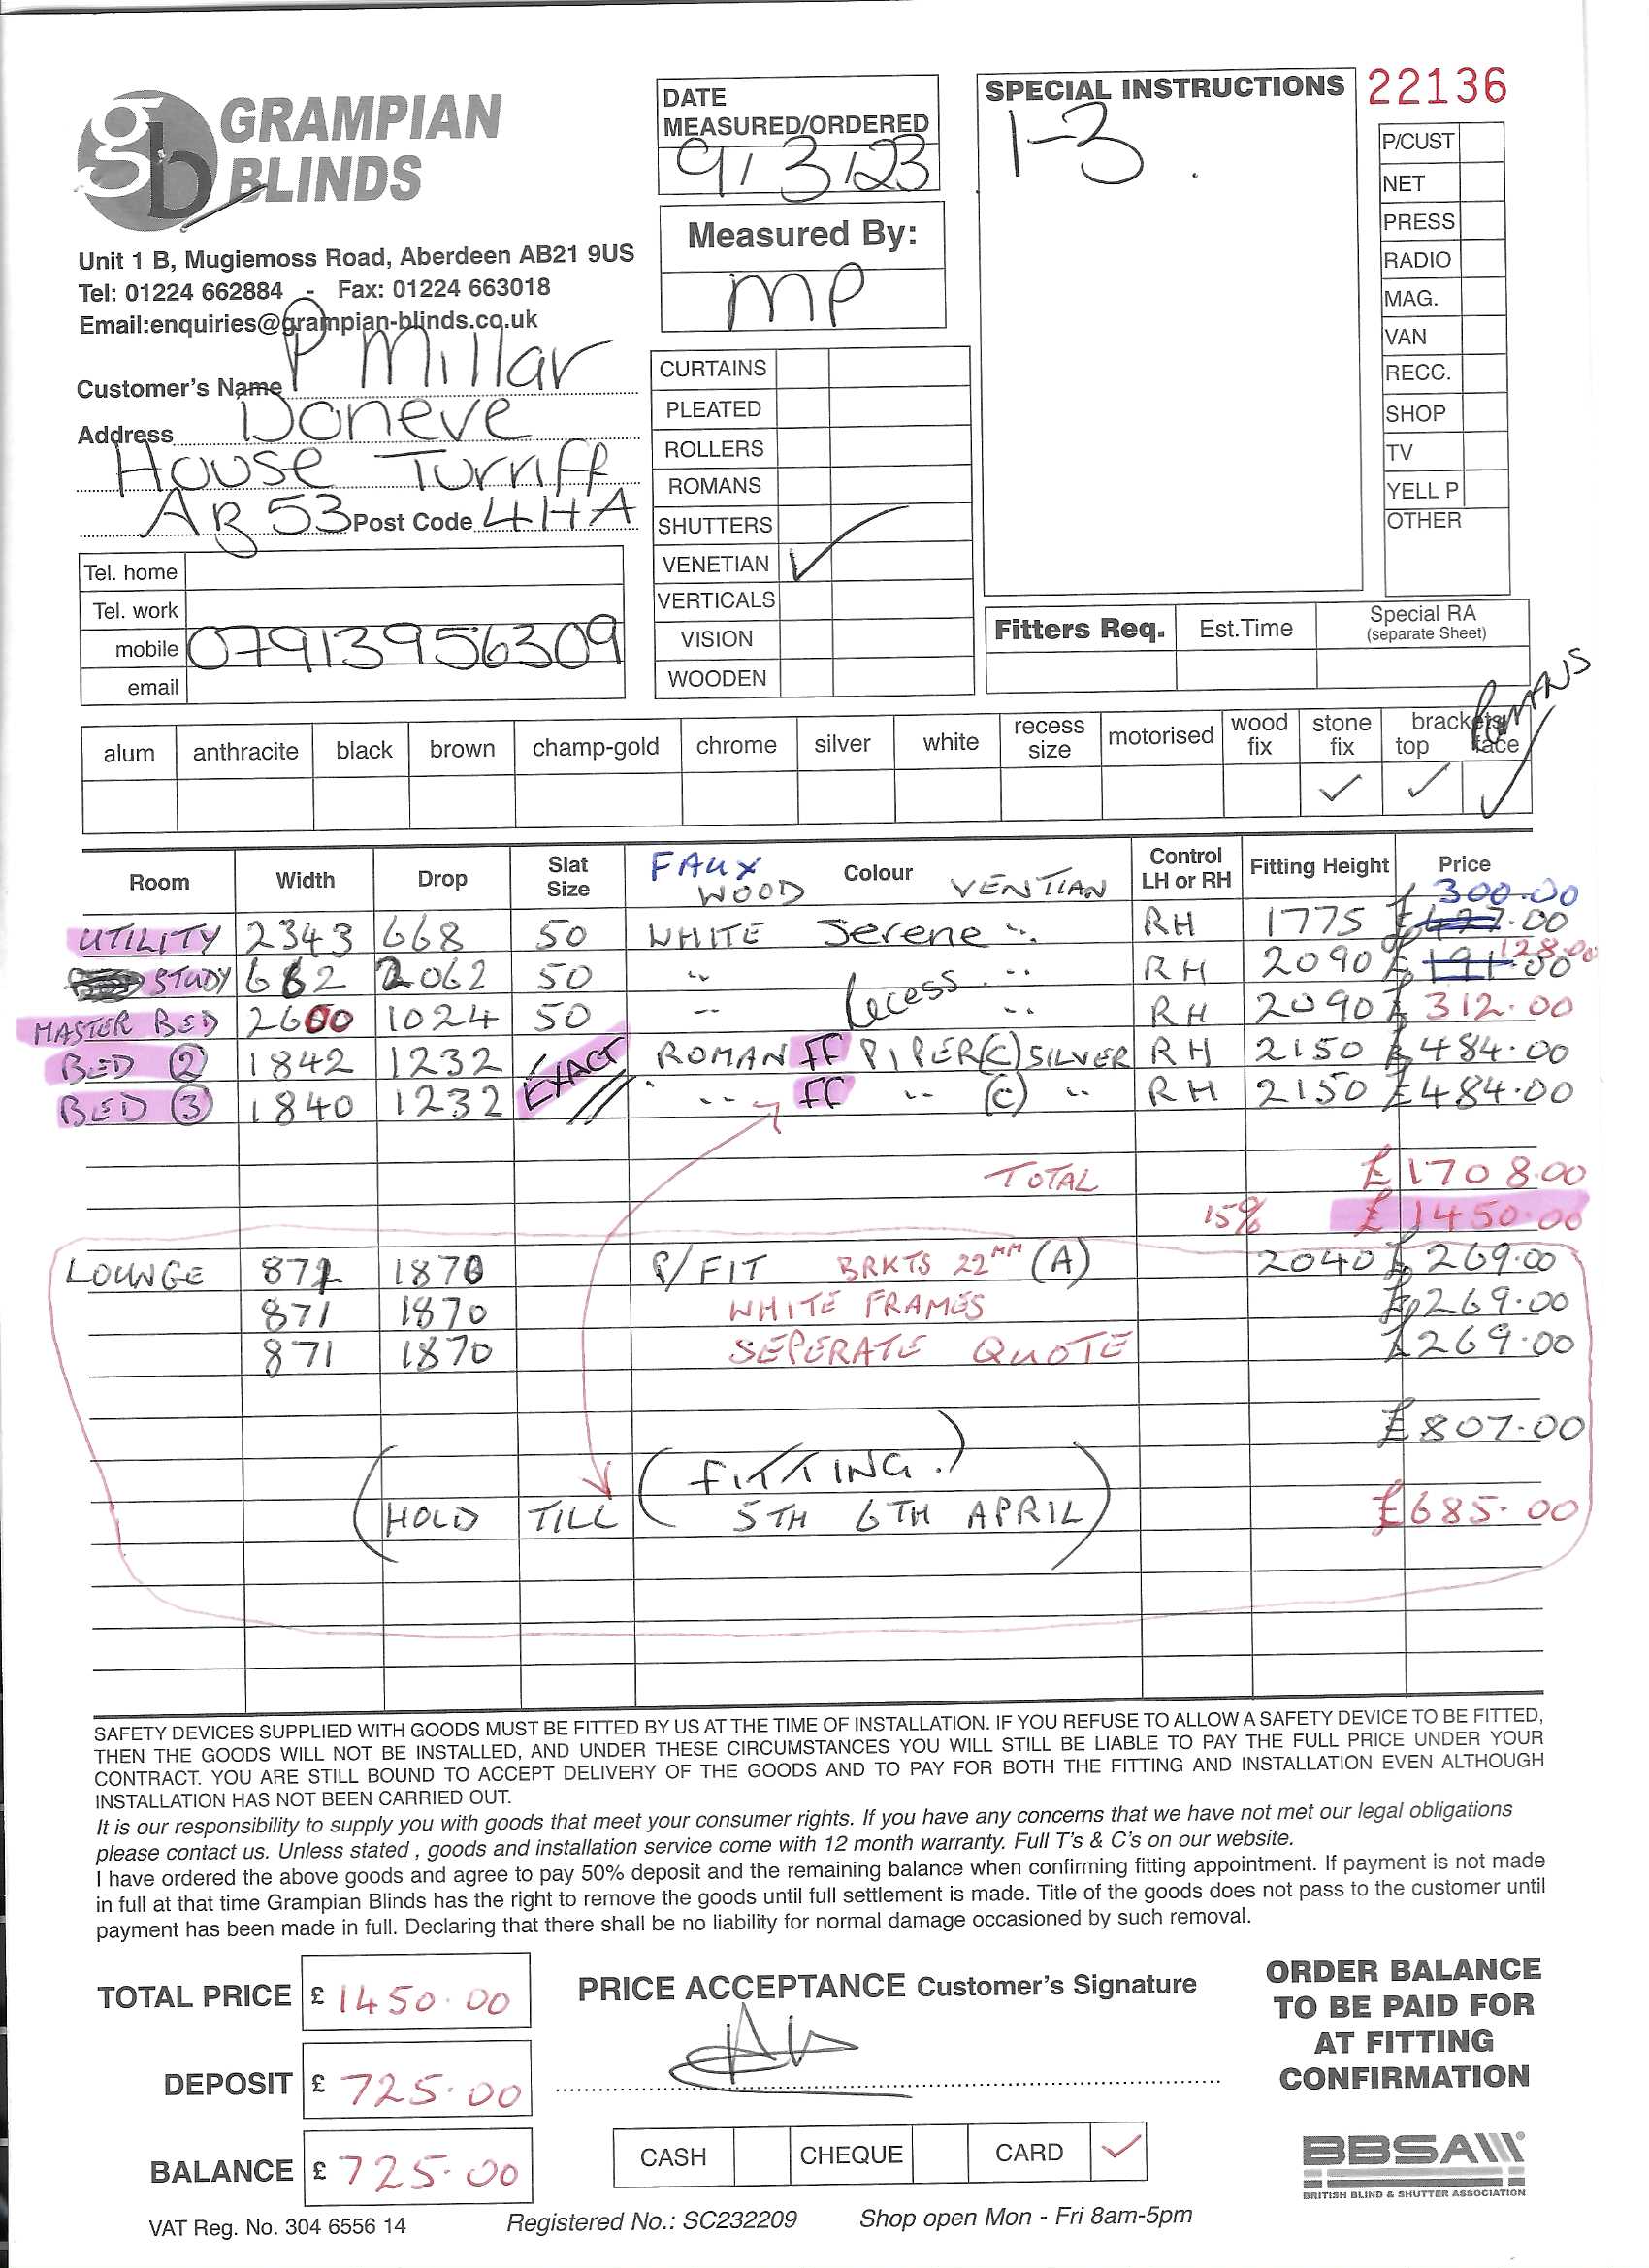 gb GRAMPIAN BLINDS
Unit 1 B, Mugiemoss Road, Aberdeen AB21 9US
Tel: 01224 662884 - Fax: 01224 663018
Email:enquiries@grampian-blinds.co.uk
Customer's Name P Millar
Address Doneve
House Turriff
AB53 Post Code 4HA
Tel. home
Tel. work
mobile 07913956309
email
DATE
MEASURED/ORDERED
9/3/23
Measured By:
MP
CURTAINS
PLEATED
ROLLERS
ROMANS
SHUTTERS
VENETIAN ✓
VERTICALS
VISION
WOODEN
SPECIAL INSTRUCTIONS
1-3
22136
P/CUST
NET
PRESS
RADIO
MAG.
VAN
RECC.
SHOP
TV
YELL P
OTHER
Fitters Req. Est.Time Special RA (separate Sheet)
ROMANS
alum anthracite black brown champ-gold chrome silver white recess size motorised wood fix stone fix brackets top face
✓ ✓ ✓
Room Width Drop Slat Size FAUX WOOD Colour VENTIAN Control LH or RH Fitting Height Price
300.00
UTILITY 2343 668 50 WHITE Serene " RH 1775 £427.00
128.00
STUDY 662 2062 50 " " RH 2090 £191.00
MASTER BED 2600 1024 50 " Recess " RH 2090 £312.00
BED 2 1842 1232 EXACT ROMAN FF PIPER (C) SILVER RH 2150 £484.00
BED 3 1840 1232 " FF " (C) " RH 2150 £484.00
TOTAL £1708.00
15% £1450.00
LOUNGE 871 1870 P/FIT BRKTS 22MM (A) 2040 £269.00
871 1870 WHITE FRAMES £269.00
871 1870 SEPERATE QUOTE £269.00
£807.00
(FITTING.)
(HOLD TILL 5TH 6TH APRIL) £685.00
SAFETY DEVICES SUPPLIED WITH GOODS MUST BE FITTED BY US AT THE TIME OF INSTALLATION. IF YOU REFUSE TO ALLOW A SAFETY DEVICE TO BE FITTED,
THEN THE GOODS WILL NOT BE INSTALLED, AND UNDER THESE CIRCUMSTANCES YOU WILL STILL BE LIABLE TO PAY THE FULL PRICE UNDER YOUR
CONTRACT. YOU ARE STILL BOUND TO ACCEPT DELIVERY OF THE GOODS AND TO PAY FOR BOTH THE FITTING AND INSTALLATION EVEN ALTHOUGH
INSTALLATION HAS NOT BEEN CARRIED OUT.
It is our responsibility to supply you with goods that meet your consumer rights. If you have any concerns that we have not met our legal obligations
please contact us. Unless stated , goods and installation service come with 12 month warranty. Full T's & C's on our website.
I have ordered the above goods and agree to pay 50% deposit and the remaining balance when confirming fitting appointment. If payment is not made
in full at that time Grampian Blinds has the right to remove the goods until full settlement is made. Title of the goods does not pass to the customer until
payment has been made in full. Declaring that there shall be no liability for normal damage occasioned by such removal.
TOTAL PRICE £ 1450.00
DEPOSIT £ 725.00
BALANCE £ 725.00
PRICE ACCEPTANCE Customer's Signature
CASH CHEQUE CARD ✓
ORDER BALANCE
TO BE PAID FOR
AT FITTING
CONFIRMATION
BBSA
BRITISH BLIND & SHUTTER ASSOCIATION
VAT Reg. No. 304 6556 14 Registered No.: SC232209 Shop open Mon - Fri 8am-5pm